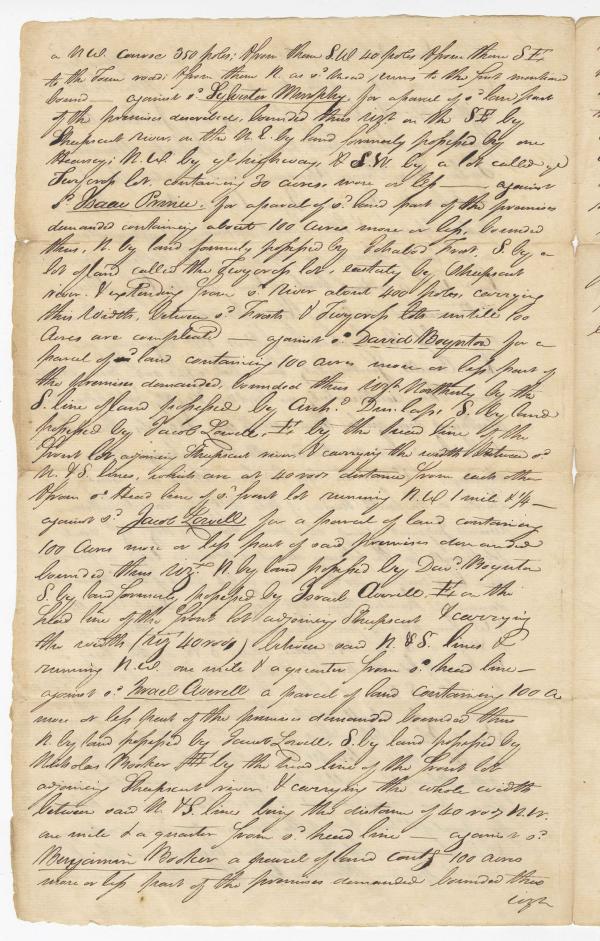 a N.W. course 350 poles; & from them S.W 40 poles & from them S E
to the Town road; & from them N. as sd. head runs to the first mentioned
bound — against sd. Sylvester Murphy, for a parcel of sd. land part
of the premises described, bounded thus vizt on the SE by
Sheepscut river, on the N.E. by land formerly possessed by one
Hearsey; N.W. by ye highway, & S.W. by a lot called ye
lot, containing 30 acres, more or less — against
sd. Isaac Prince, for a parcel of sd. land part of the premises
demanded containing about 100 acres more or less, bounded
thus, N. by land formerly possessed by Ichabod Frost, S. by a
lot of land called the lot, easterly by Sheepscut
river, & extending from sd. River about 400 poles, carrying
this width, between sd. Frosts & lots untill 100
Acres are compleated — against sd. David Boynton for a
parcel of land containing 100 acres more or less part of
the premises demanded, bounded thus vizt. Northerly by the
S. line of land possessed by Archd. Dunlap, S. by land
possessed by Jacob Lowell, E. by the head line of the
front lot adjoining Sheepscut river, & carrying the width between sd.
N. & S. lines, which are at 40 rods distance from each other
& from sd. Head line of sd. front lot running N.W 1 mile & ¼ —
against sd. Jacob Lowell for a parcel of land containing
100 Acres more or less part of said premises demanded
bounded thus vizt. N by land possessed by Davd. Boynton
S. by land formerly possessed by Israel Averell, E. on the
head line of the front lot adjoining Sheepscut & carrying
the width (viz 40 rods) between said N. & S. lines &
running N.W. one mile & a quarter from sd. head line —
against sd. Israel Averell a parcel of land containing 100 a
more or less part of the premises demanded bounded thus
N. by land possessed by Jacob Lowell, S. by land possessed by
Nicholas Booker E by the head line of the front lot
adjoining Sheepscut river & carrying the whole width
between said N. & S. lines being the distance of 40 rods N.W.
one mile & a quarter from sd. head line — against sd.
Benjamin Booker a parcel of land contg 100 acres
more or less part of the premises demanded bounded thus
vizt